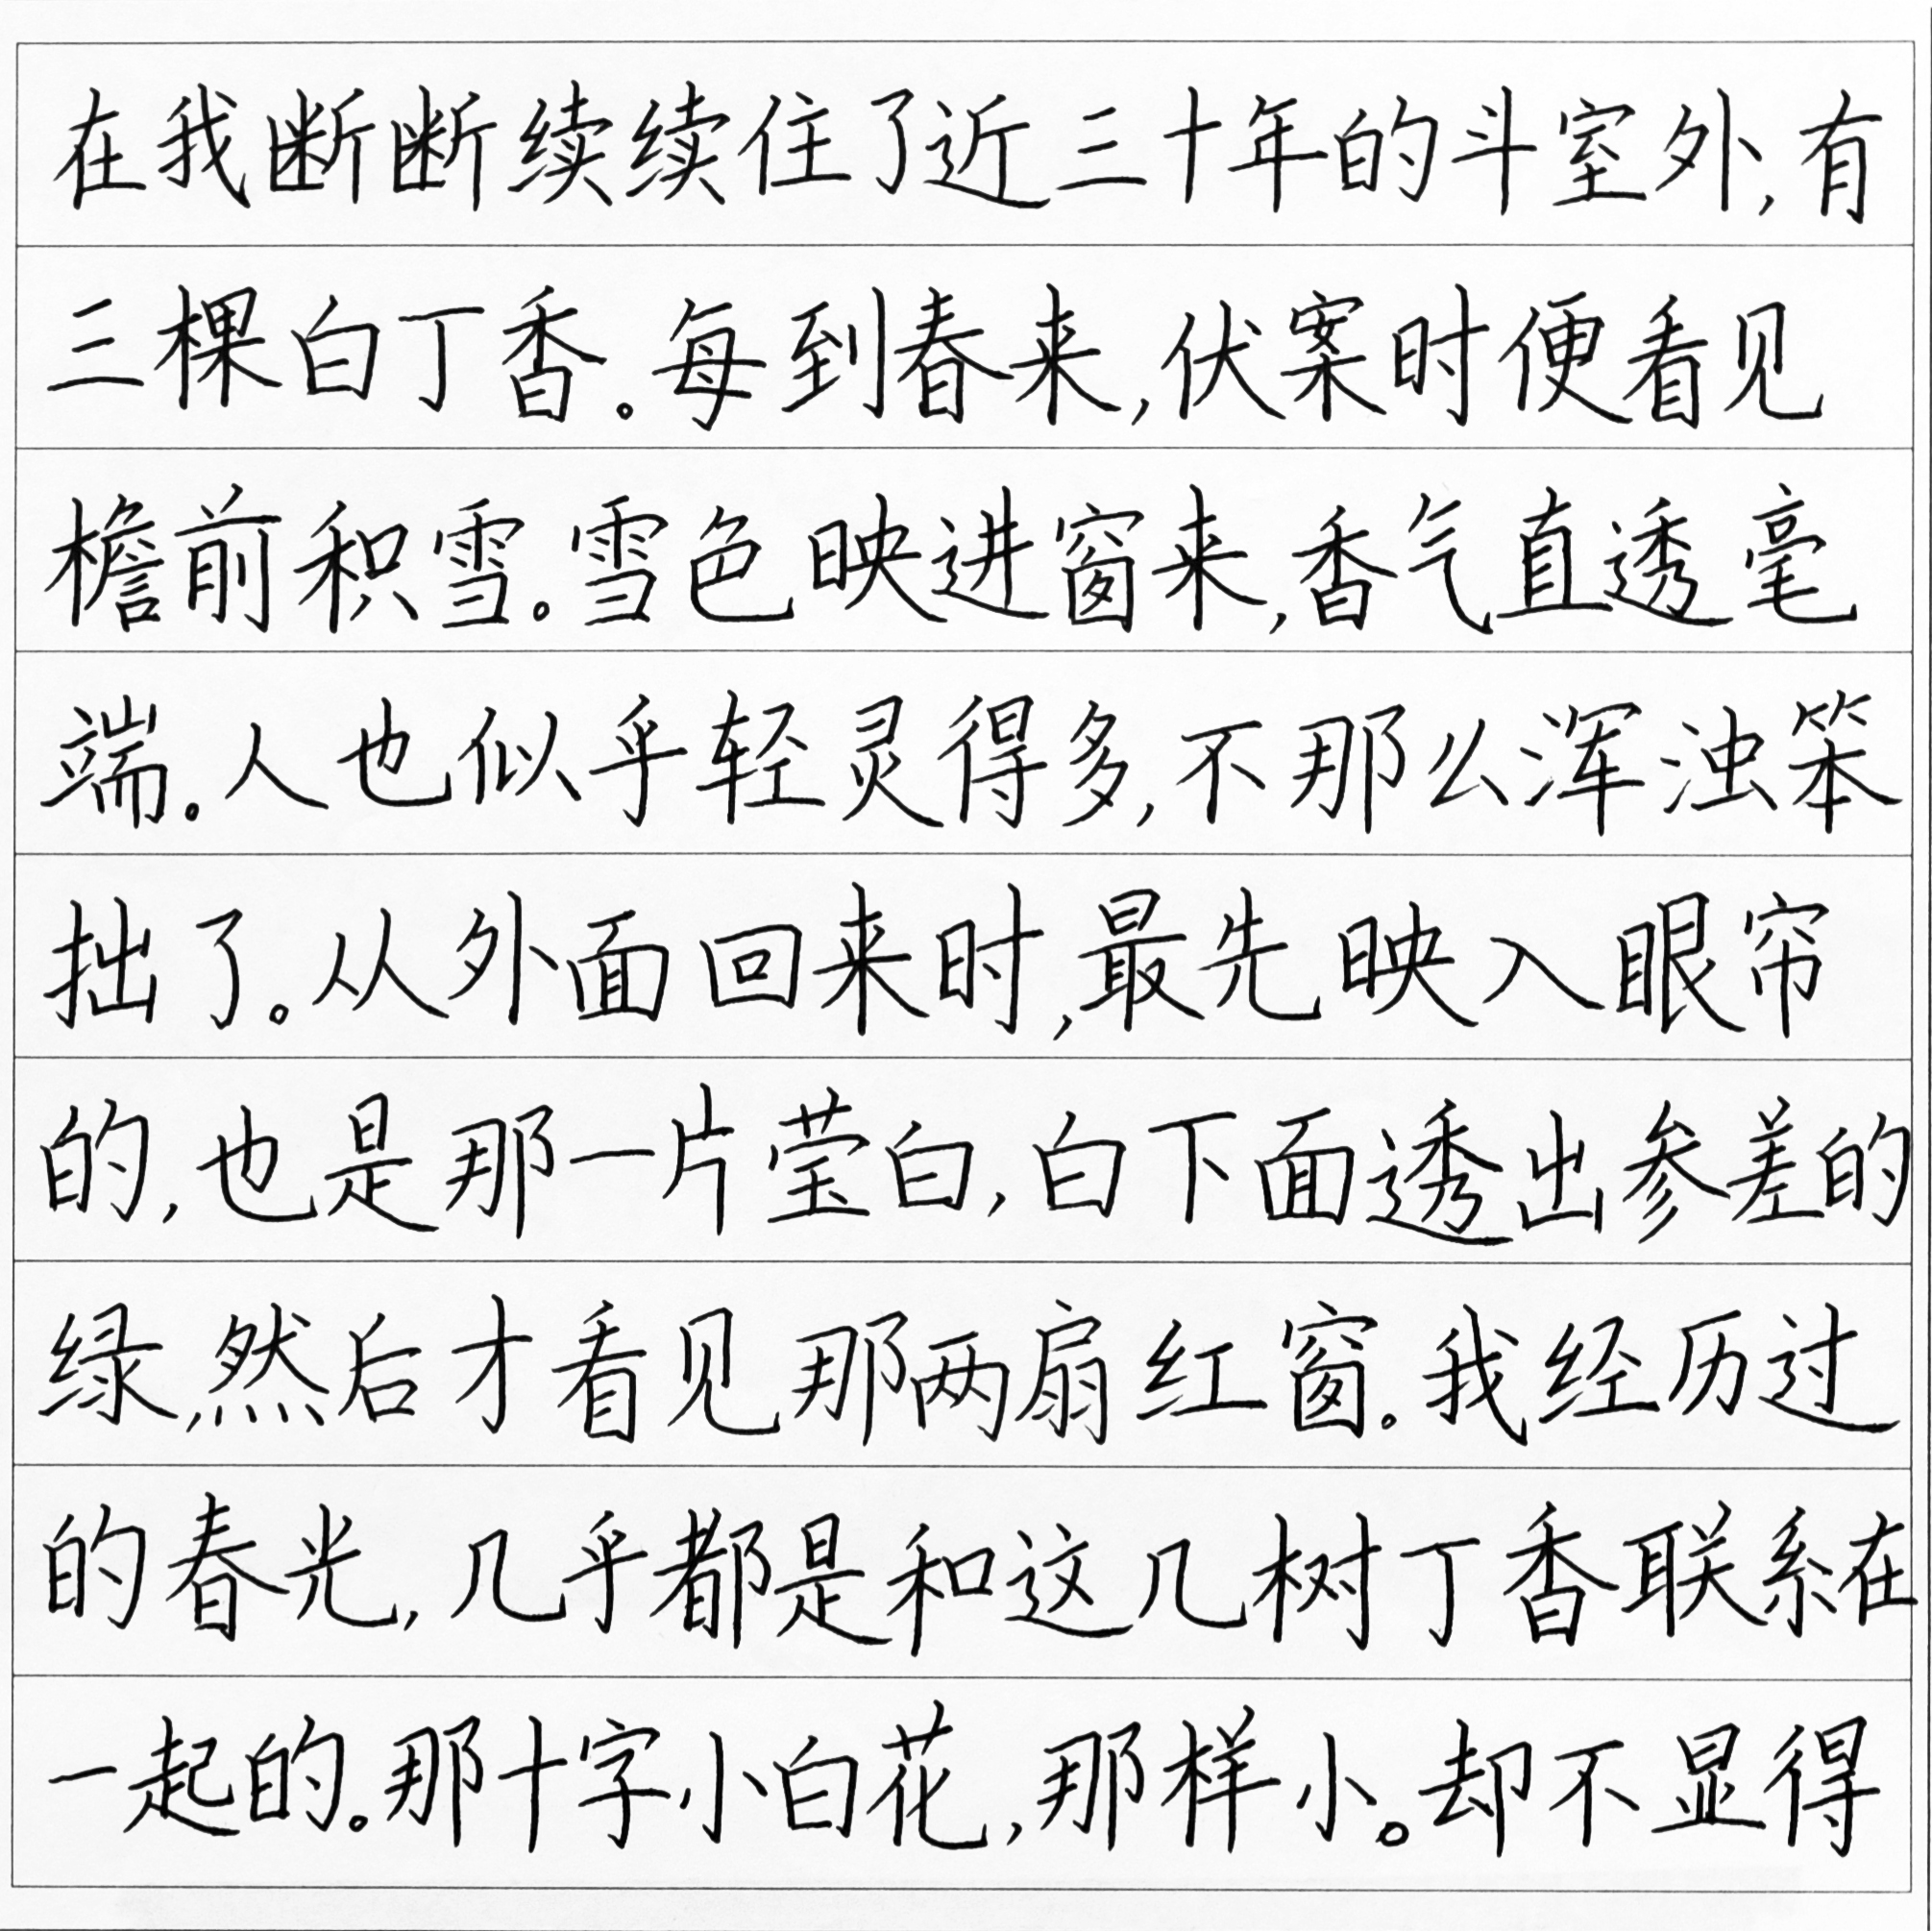 在我断断续续住了近三十年的斗室外,有
三棵白丁香。每到春来,伏案时便看见
檐前积雪。雪色映进窗来,香气直透毫
端。人也似乎轻灵得多,不那么浑浊笨
拙了。从外面回来时,最先映入眼帘
的,也是那一片莹白,白下面透出参差的
绿,然后才看见那两扇红窗。我经历过
的春光,几乎都是和这几树丁香联系在
一起的。那十字小白花,那样小。却不显得